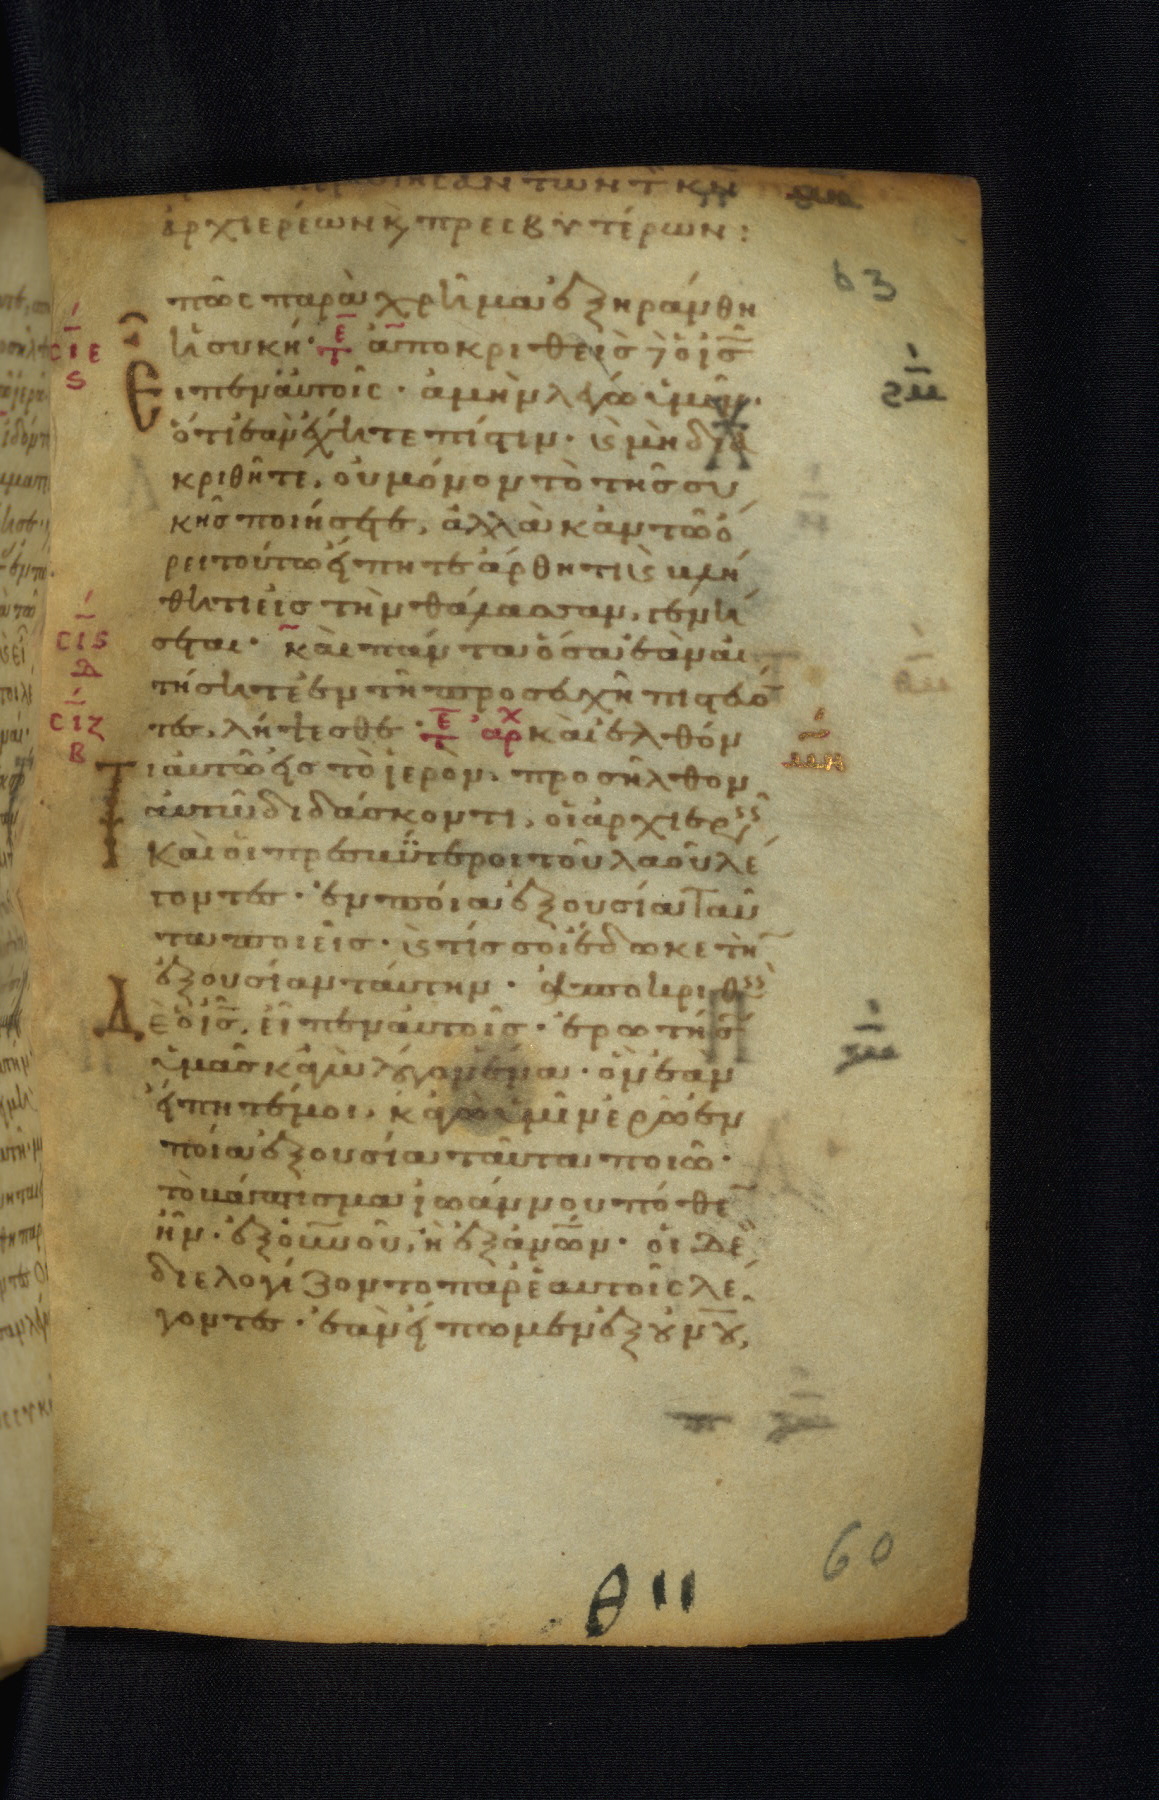 τῶν τὸν κν
ἀρχιερέων κ, πρεσβυτέρων:
63
πῶς παρὰ χρῆμα ἐξηράνθη
ἡ συκῆ· ἀποκριθεὶς δὲ ὁ ις
Ειπεν αὐτοῖς· ἀμὴν λέγω ὑμῖν·
ὅτι ἐὰν ἔχητε πίστιν· κ μὴ δια
κριθῆτε, οὐ μόνον τὸ τῆς συ
κῆς ποιήσετε, ἀλλὰ κἂν τῶ ὄ
ρει τούτω εἴπητε ἄρθητι κ βλή
θητι εἰς τὴν θάλασσαν, γενή
σεται· καὶ πάντα ὅσα ἐὰν αἰ
τήσητε ἐν τῆ προσευχῆ πιστεύο
τες, λήψεσθε· τε αρχ καὶ ἐλθόν
Τι αὐτῶ εἰς τὸ ἱερὸν, προσῆλθον
αὐτῶ διδάσκοντι, οἱ ἀρχιερεῖς
καὶ οἱ πρεσβύτεροι τοῦ λαοῦ λέ
γοντες· ἐν ποία ἐξουσία ταῦ
τα ποιεῖς· κ τίς σοι ἔδωκε τὴν
ἐξουσίαν ταύτην· ἀποκριθεὶς
Δὲ ὁ ις, εἶπεν αὐτοῖς· ἐρωτήσω
ὑμᾶς κἀγὼ λόγον ἕνα· ὃν ἐὰν
εἴπητέ μοι, κἀγὼ ὑμῖν ἐρῶ ἐν
ποία ἐξουσία ταῦτα ποιῶ·
τὸ βάπτισμα ἰωάννου πόθεν
ἦν· ἐξ οὐνοῦ, ἢ ἐξ ἀνῶν· οἱ δὲ
διελογίζοντο παρ' ἑαυτοῖς λέ
γοντες· ἐὰν εἴπωμεν ἐξ ουνου,
σιε
ς
σις
δ
σιζ
β
60
θ 11